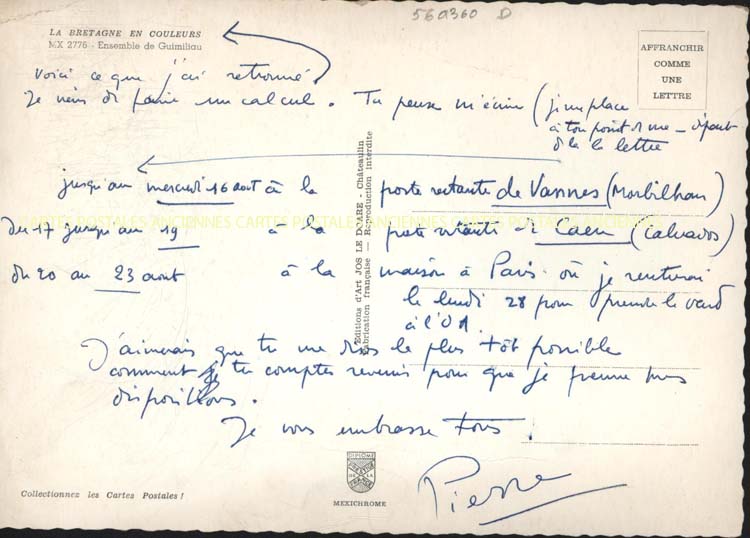 560360 D
LA BRETAGNE EN COULEURS
MX 2776 - Ensemble de Guimiliau
AFFRANCHIR
COMME
UNE
LETTRE
Voici ce que j'ai retrouvé.
Je viens de faire un calcul. Tu peux m'écrire (je me place
à ton point de vue - départ
de la lettre
jusqu'au mercredi 16 aout à la poste restante de Vannes (Morbihan)
du 17 jusqu'au 19 à la poste restante de Caen (Calvados)
du 20 au 23 aout à la maison à Paris où je rentrerai
le lundi 28 pour prendre le
à l'
J'aimerais que tu me dises le plus tôt possible
comment tu comptes revenir pour que je prenne mes
dispositions.
Je vous embrasse tous.
Pierre
Editions d'Art JOS LE DOARE - Châteaulin
Fabrication française — Reproduction interdite
CARTES POSTALES ANCIENNES CARTES POSTALES ANCIENNES CARTES POSTALES ANCIENNES
DIPLOME
PRESTIGE
DE LA
FRANCE
MEXICHROME
Collectionnez les Cartes Postales !